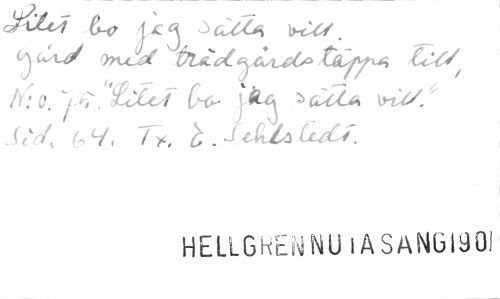 Litet bo jag sätta vill.
gård med trädgårdstäppa till,
N:o. 75. "Litet bo jag sätta vill."
Sid. 64. Tx. E. Sehlstedt.
HELLGRENNUTASANG1901